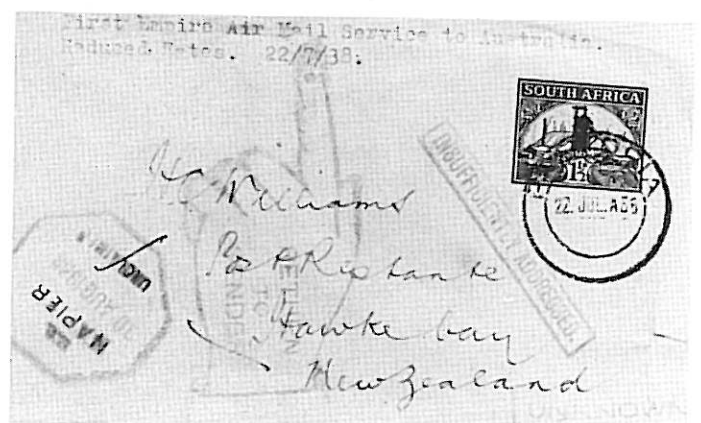 First Empire Air Mail Service to Australia.
Reduced Rates. 22/7/38.
SOUTH AFRICA
1½
22 JUL
INSUFFICIENTLY ADDRESSED.
H.C. Williams
Post Restante
Hawke bay
New Zealand
UNCLAIMED
NAPIER
RETURN
TO
UNKNOWN